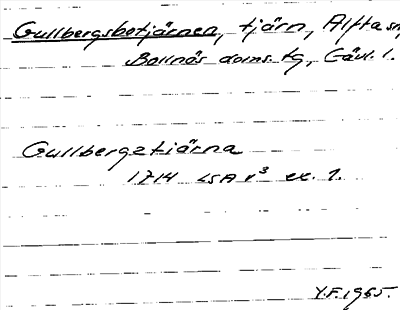 Gullbergsbotjärnen, tjärn, Alfta sn,
Bollnäs doms. tg, Gävl. l.
Gullbergztiärna
1714 LSA v³ ex. 1.
Y.F. 1955.